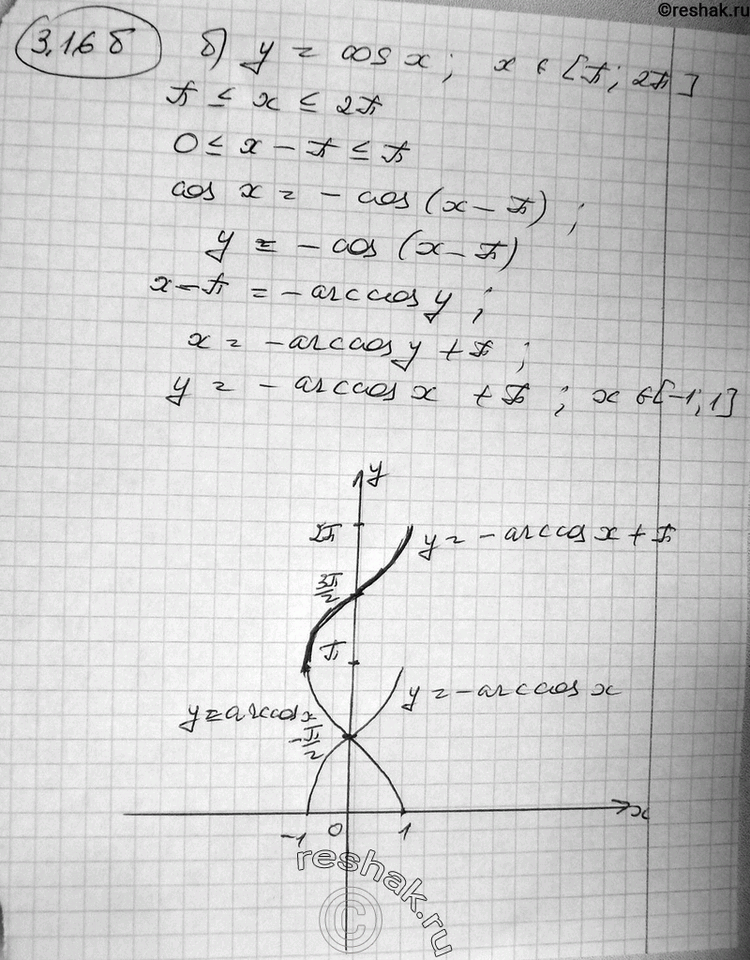 ©reshak.ru
3.16 б
б) y = cos x ; x ∈ [π; 2π]
π ≤ x ≤ 2π
0 ≤ x − π ≤ π
cos x = − cos (x − π) ;
y = − cos (x − π)
x − π = − arccos y ;
x = − arccos y + π ;
y = − arccos x + π ; x ∈ [−1; 1]
y
2π
y = − arccos x + π
3π/2
π
y = − arccos x
y = arccos x
π/2
−1 0 1 x
reshak.ru
©